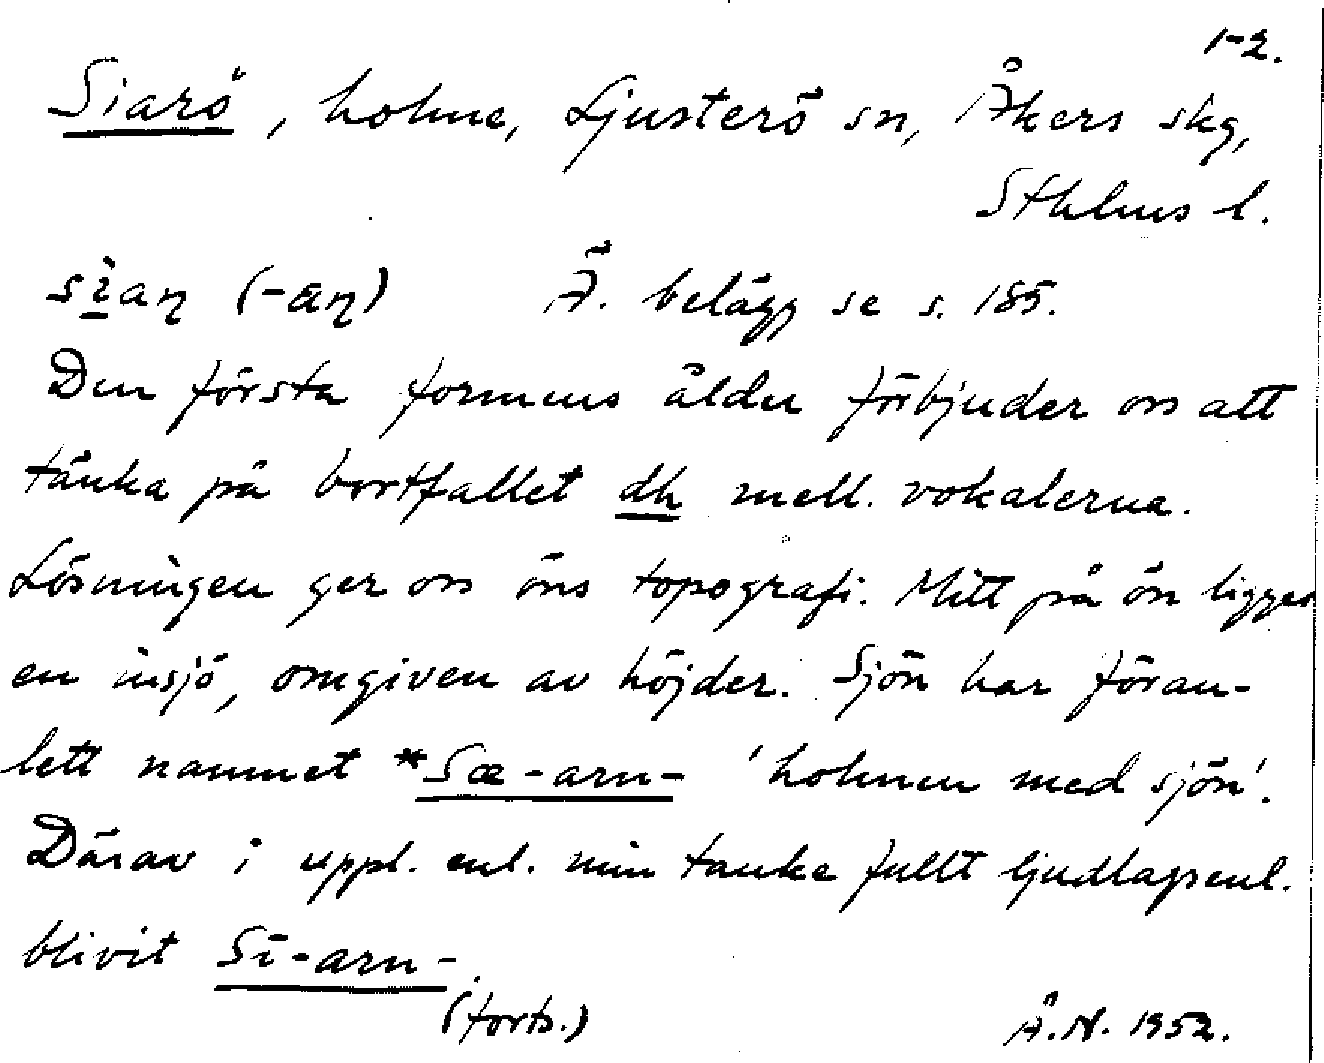 1-2.
Siarö, holme, Ljusterö sn, Åkers skg,
Sthlms l.
sìaƞ (-aƞ) Ä. belägg se s. 185.
Den första formens ålder förbjuder oss att
tänka på bortfallet dh mell. vokalerna.
Lösningen ger oss öns topografi. Mitt på ön ligger
en insjö, omgiven av höjder. Sjön har föran-
lett namnet *Sæ-arn- 'holmen med sjön'.
Därav i uppl. enl. min tanke fullt ljudlagsenl.
blivit Sī-arn-.
(forts.) Å.N. 1952.